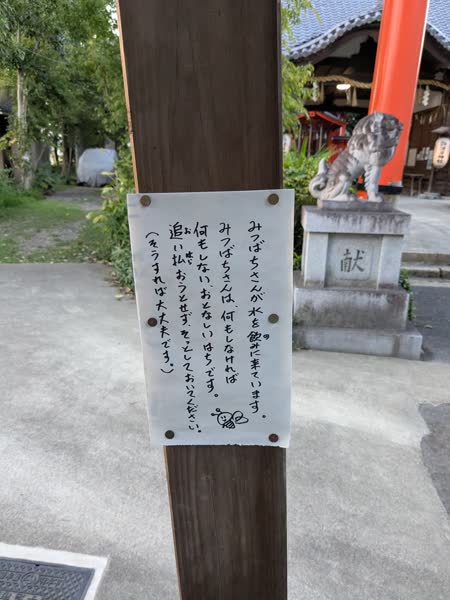 みつばちさんが水を飲みに来ています。
みつばちさんは、何もしなければ
何もしない、おとなしいはちです。
追い払おうとせず、そっとしておいてください。
(そうすれば大丈夫です。)
献